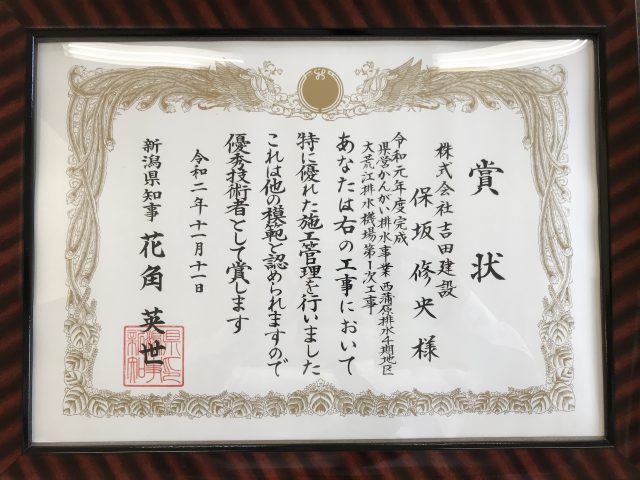 賞状
株式会社吉田建設
保坂修央様
令和元年度完成
県営かんがい排水事業 西蒲原排水4期地区
大荒江排水機場第1次工事
あなたは右の工事において
特に優れた施工管理を行いました
これは他の模範と認められますので
優秀技術者として賞します
令和二年十一月十一日
新潟県知事 花角英世